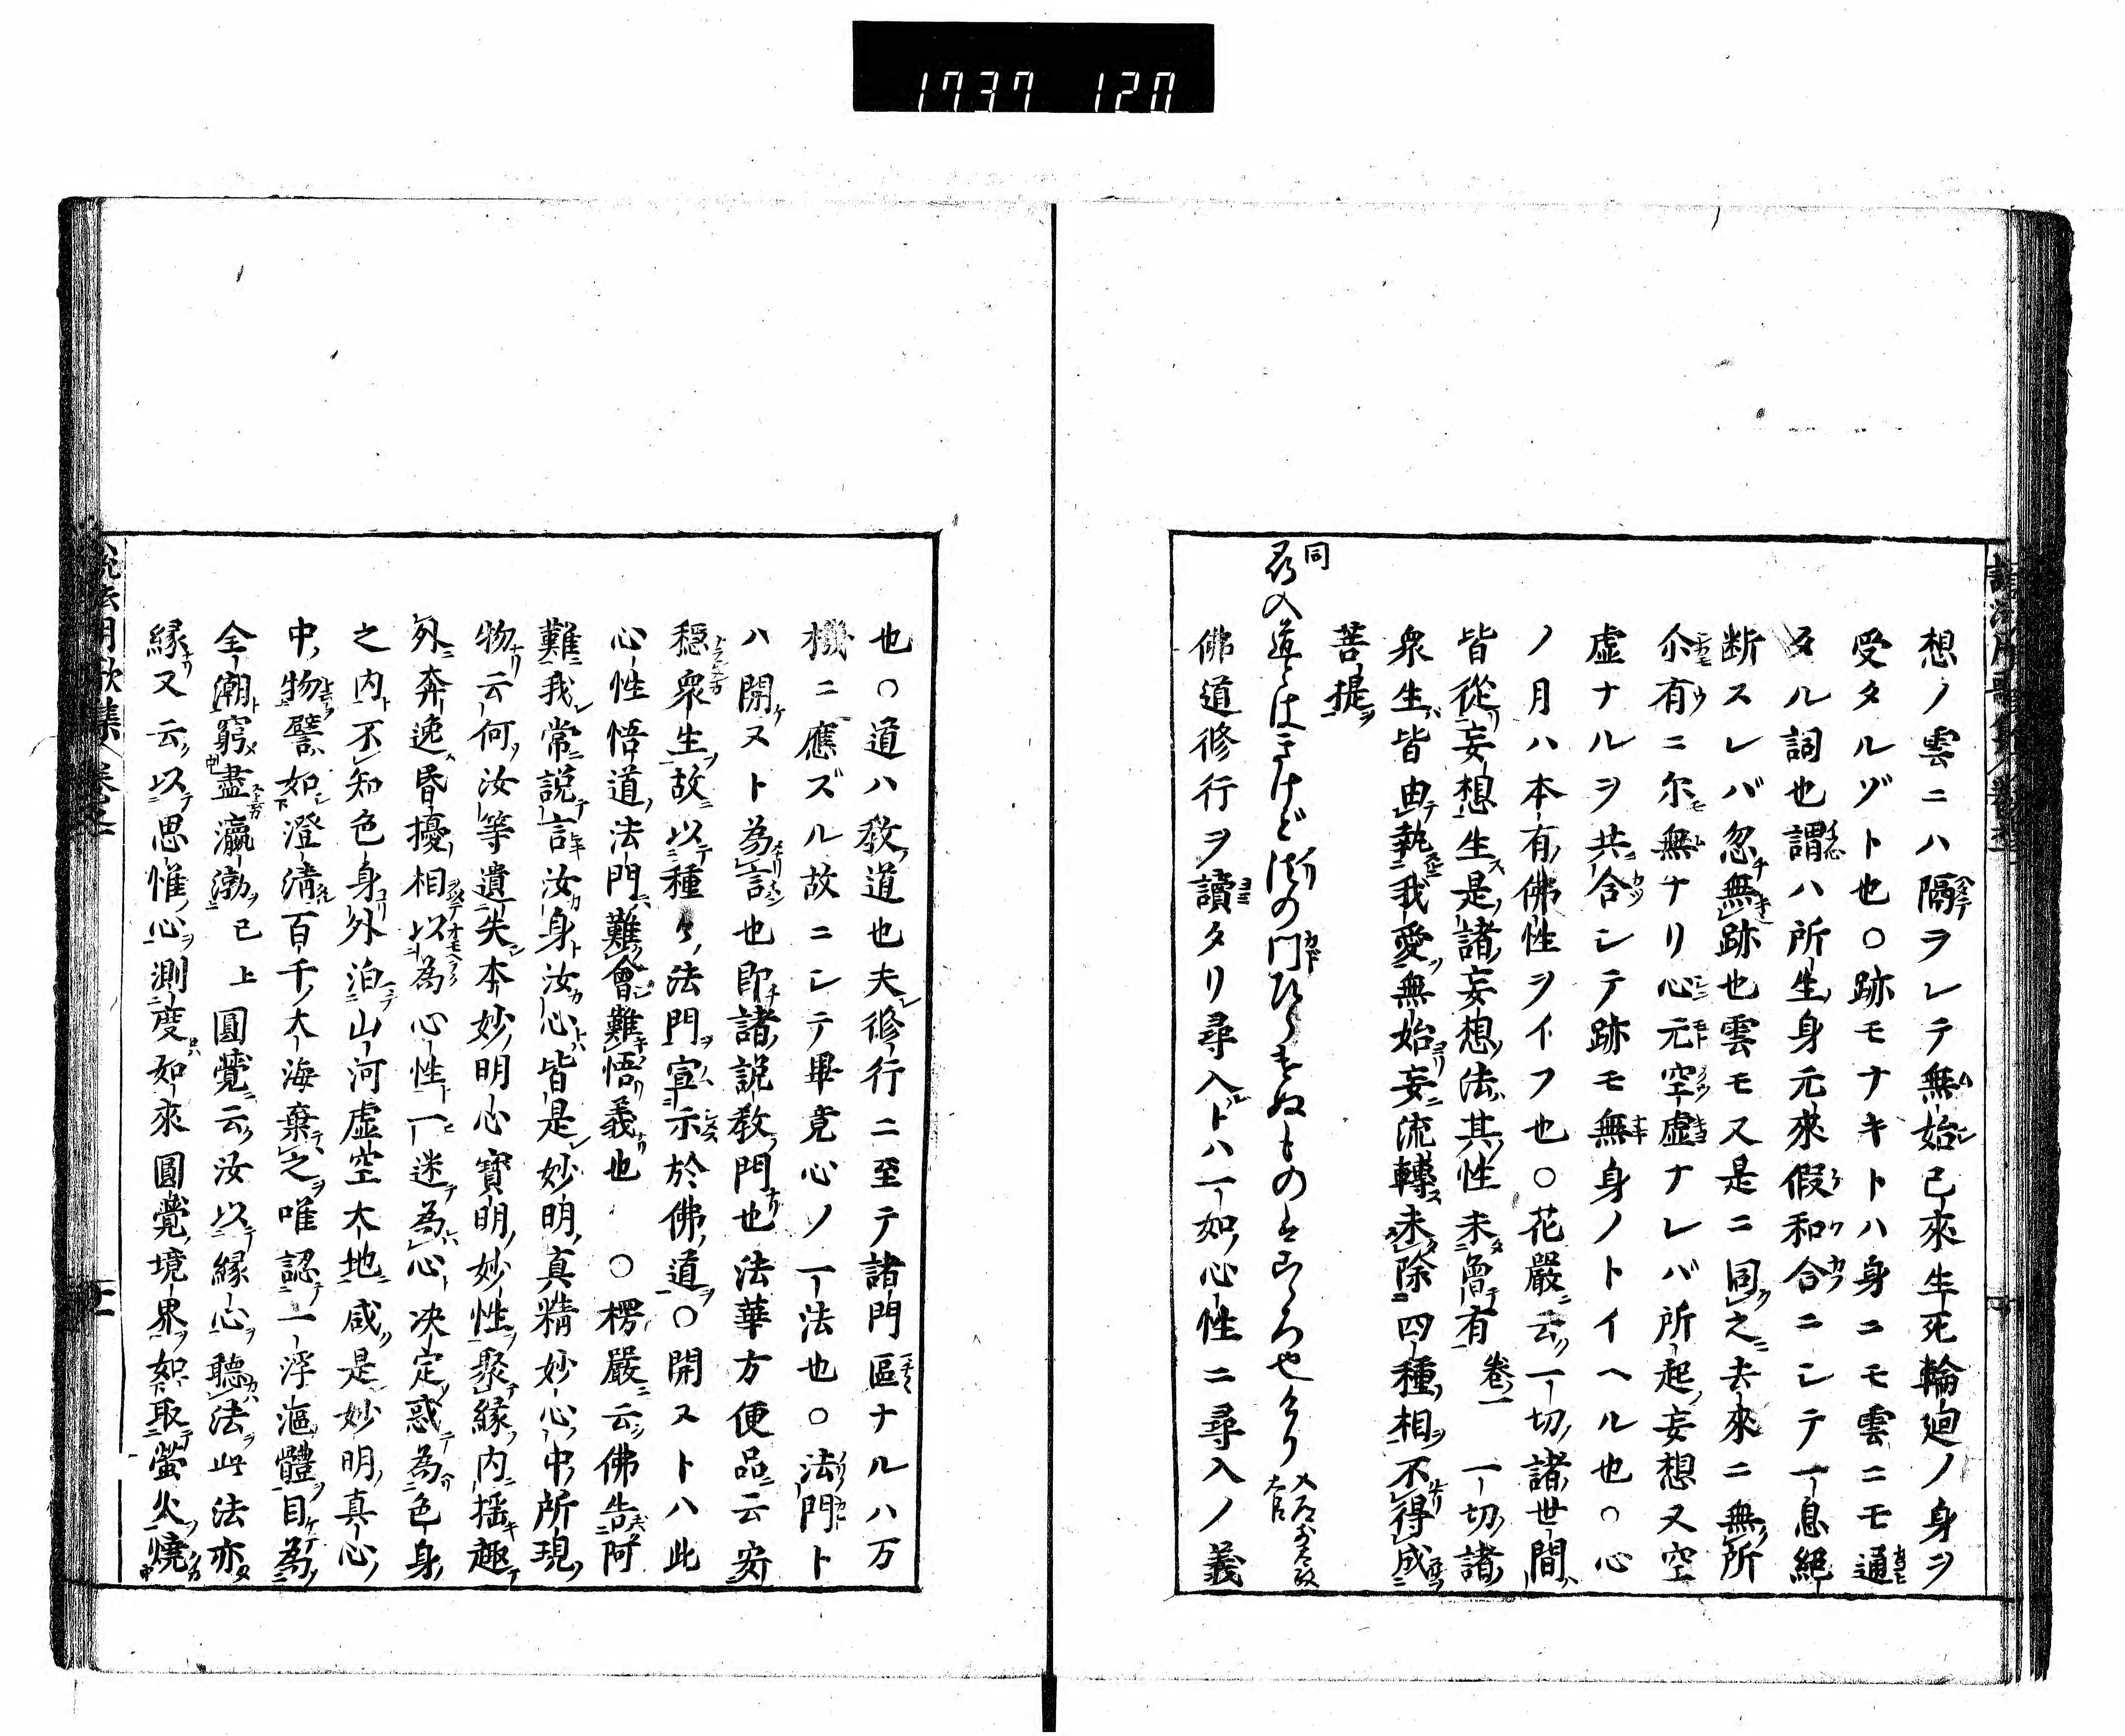 1737 120
想ノ雲ニハ隔ヲレテ無始已來生死輪廻ノ身ヲ
受タルゾト也○跡モナキトハ身ニモ雲ニモ通
タル詞也謂ハ所生身元來假和合ニシテ一息絕
断スレバ忽無跡也雲モ又是ニ同之去來ニ無所
介有ニ尔無ナリ心元空虛ナレバ所起妄想又空
虛ナルヲ共合シテ跡モ無身ノトイヘル也○心
ノ月ハ本有佛性ヲイフ也○花嚴云一切諸世間
皆從妄想生是諸妄想法其性未曾有 卷一 一切諸
衆生皆由執我愛無始妄流轉未除四種相不得成
菩提
同
尋入道はおほけれど法の門ひらきぬもののところ也けり
佛道修行ヲ讀タリ尋入トハ一如心性ニ尋入ノ義
也○道ハ教道也夫修行ニ至テ諸門區ナルハ万
機ニ應ズル故ニシテ畢竟心ノ一法也○法門ト
ハ開ヌト為言也即諸說教門也法華方便品云安
穩衆生故以種々法門宣示於佛道○開ヌトハ此
心性悟道法門難會難悟義也 ○楞嚴云佛告阿
難我常說言汝身汝心皆是妙明真精妙心中所現
物云何汝等遺失本妙明心寶明妙性聚緣内搖趣
外奔逸昏擾相以為心性一迷為心決定惑為色身
之内不知色身外洎山河虛空大地咸是妙明真心
中物譬如澄清百千大海棄之唯認一浮漚體目為
全潮窮盡瀛渤 已上 圓覺云汝以緣心聽法此法亦
緣又云以思惟心測度如來圓覺境界如取螢火燒